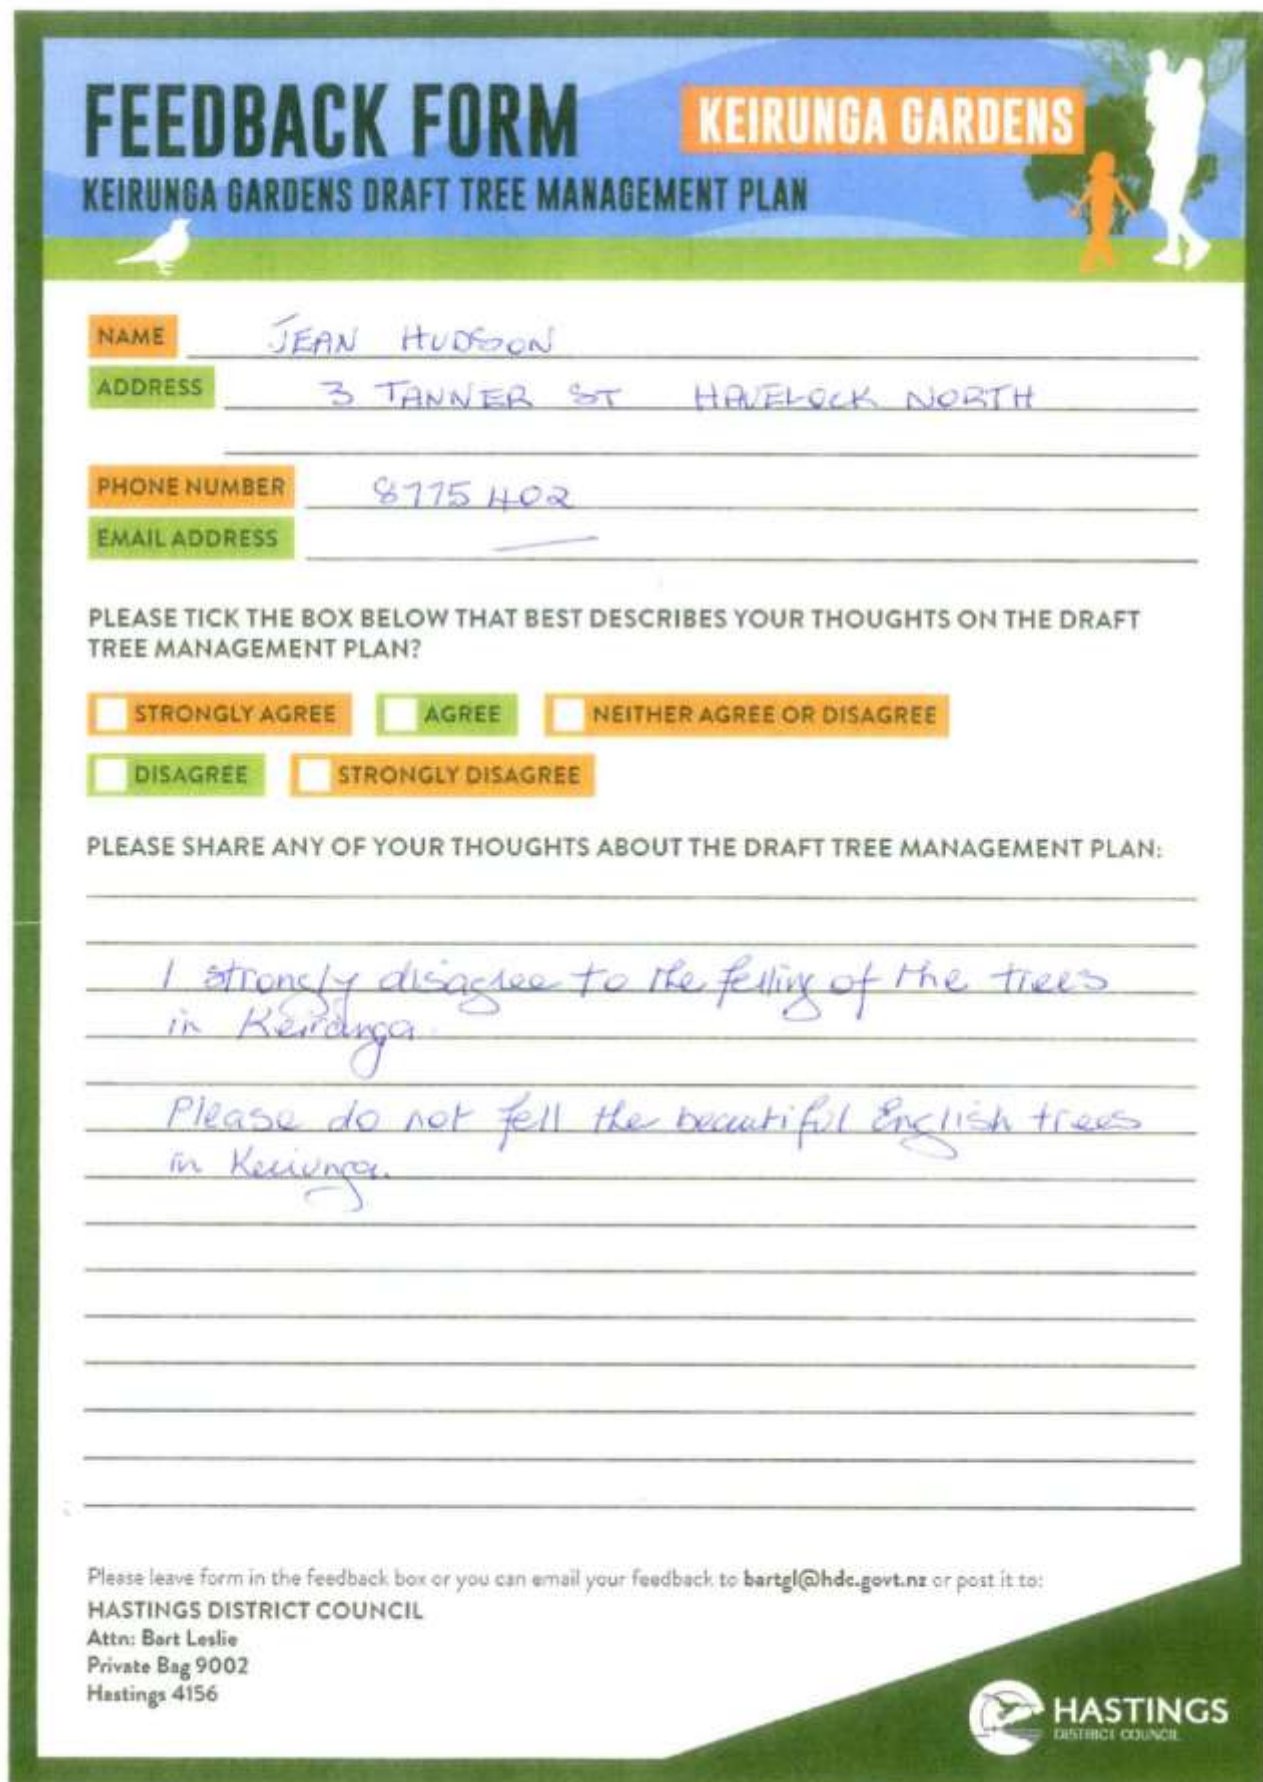 FEEDBACK FORM
KEIRUNGA GARDENS
KEIRUNGA GARDENS DRAFT TREE MANAGEMENT PLAN
NAME JEAN HUDSON
ADDRESS 3 TANNER ST HAVELOCK NORTH
PHONE NUMBER 8775402
EMAIL ADDRESS —
PLEASE TICK THE BOX BELOW THAT BEST DESCRIBES YOUR THOUGHTS ON THE DRAFT
TREE MANAGEMENT PLAN?
STRONGLY AGREE AGREE NEITHER AGREE OR DISAGREE
DISAGREE STRONGLY DISAGREE
PLEASE SHARE ANY OF YOUR THOUGHTS ABOUT THE DRAFT TREE MANAGEMENT PLAN:
I strongly disagree to the felling of the trees
in Keirunga.
Please do not fell the beautiful English trees
in Keirunga.
Please leave form in the feedback box or you can email your feedback to bartgl@hdc.govt.nz or post it to:
HASTINGS DISTRICT COUNCIL
Attn: Bart Leslie
Private Bag 9002
Hastings 4156
HASTINGS
DISTRICT COUNCIL